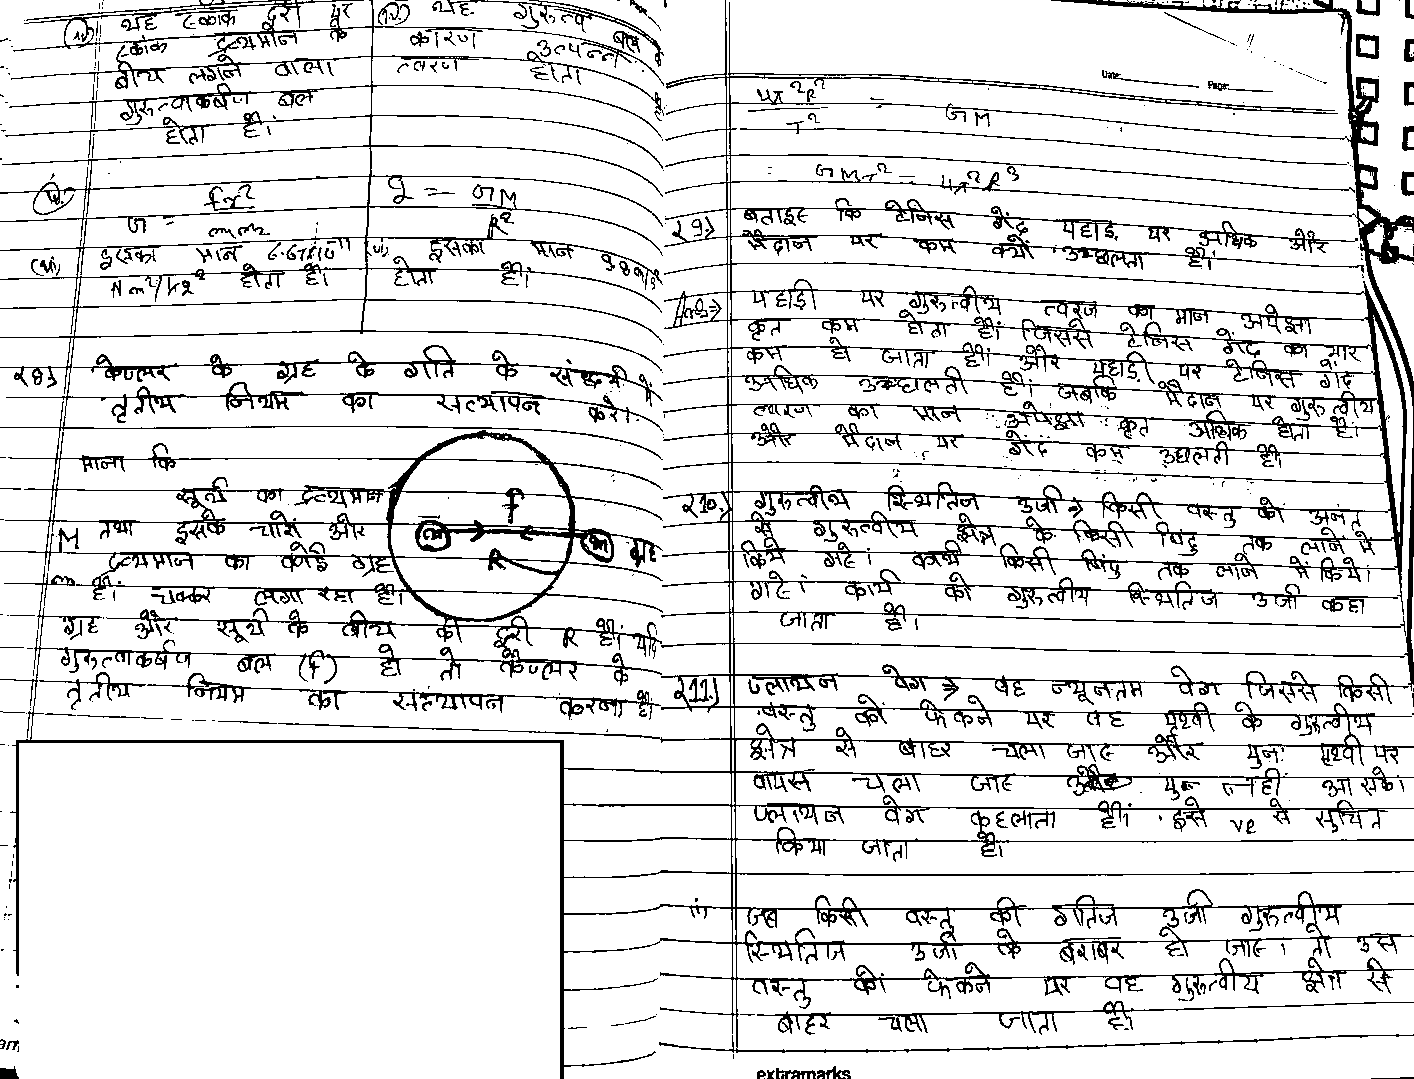 (iv) यह एकांक दूरी पर
एकांक द्रव्यमान के
बीच लगने वाला
गुरुत्वाकर्षण बल
होता है।
(iv) यह गुरुत्व बल के
कारण उत्पन्न
त्वरण होता
G = Fr²/m₁m₂
g = GM/R²
इसका मान 6.67×10¹¹
Nm²/kg² होता है।
इसका मान 9.8m/s²
होता है।
Q8) केप्लर के ग्रह के गति के संबंधी में
तृतीय नियम का सत्यापन करे।
माना कि
सूर्य का द्रव्यमान
M तथा इसके चारों और
द्रव्यमान का कोई ग्रह
m है। चक्कर लगा रहा है।
F
R
m ग्रह
ग्रह और सूर्य के बीच की दूरी R है। यदि
गुरुत्वाकर्षण बल (F) हो तो केप्लर के
तृतीय नियम का सत्यापन करना है।
Date: Page:
4π²R²/T² = GM
= GMT² = 4π²R³
Q9) बताइए कि टेनिस गेंद पहाड़ पर अधिक और
मैदान पर कम क्यों उछलता है।
Ans⇒ पहाड़ी पर गुरुत्वीय त्वरज का मान अपेक्षा
कृत कम होता है। जिससे टेनिस गेंद का भार
कम हो जाता है। और पहाड़ी पर टेनिस गेंद
अधिक उछलती है। जबकि मैदान पर गुरुत्वीय
त्वरण का मान अपेक्षा कृत अधिक होता है।
और मैदान पर गेंद कम उछलती है।
Q10.) गुरुत्वीय स्थितिज उर्जा ⇒ किसी वस्तु को अनंत
से गुरुत्वीय क्षेत्र के किसी बिंदु तक लाने में
किये गए। कार्य किसी बिंदु तक लाने में किये।
गए। कार्य को गुरुत्वीय स्थितिज उर्जा कहा
जाता है।
Q11.) पलायन वेग ⇒ वह न्यूनतम वेग जिससे किसी
वस्तु को फेंकने पर वह पृथ्वी के गुरुत्वीय
क्षेत्र से बाहर चला जाए और पुनः पृथ्वी पर
वापस चला जाए पुन नहीं आ सके।
पलायन वेग कहलाता है। इसे ve से सुचित
किया जाता है।
(i) जब किसी वस्तु की गतिज उर्जा गुरुत्वीय
स्थितिज उर्जा के बराबर हो जाए। तो उस
वस्तु को फेकने पर वह गुरुत्वीय क्षेत्र से
बाहर चला जाता है।
extramarks